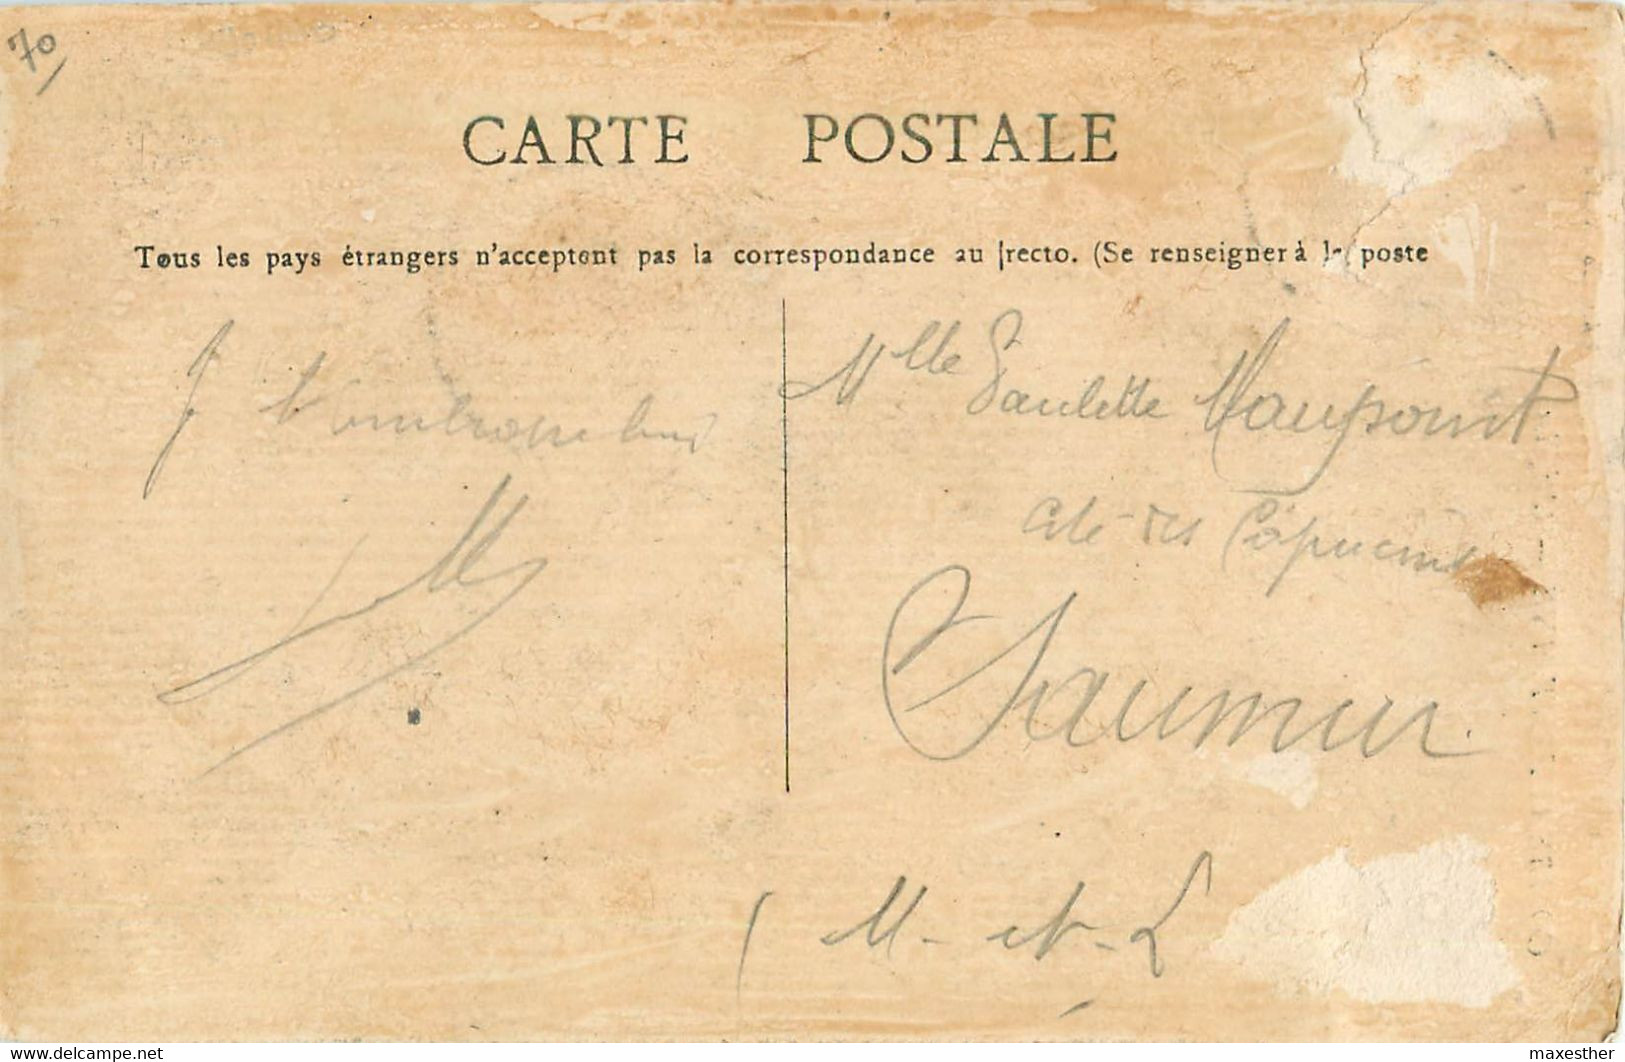 70
CARTE POSTALE
Tous les pays étrangers n'acceptent pas la correspondance au recto. (Se renseigner à la poste
Mlle Paulette Maupoint
Cité des Capucins
Saumur
(M-et-L
www.delcampe.net
maxesther